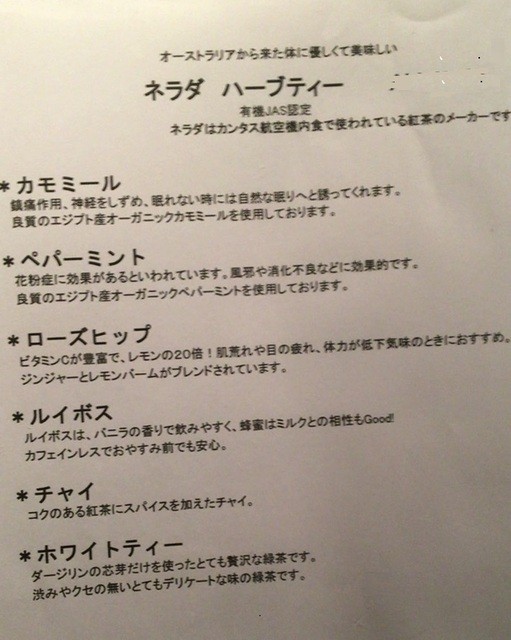 オーストラリアから来た体に優しくて美味しい
ネラダ ハーブティー
有機JAS認定
ネラダはカンタス航空機内食で使われている紅茶のメーカーです
*カモミール
鎮痛作用、神経をしずめ、眠れない時には自然な眠りへと誘ってくれます。
良質のエジプト産オーガニックカモミールを使用しております。
*ペパーミント
花粉症に効果があるといわれています。風邪や消化不良などに効果的です。
良質のエジプト産オーガニックペパーミントを使用しております。
*ローズヒップ
ビタミンCが豊富で、レモンの20倍！肌荒れや目の疲れ、体力が低下気味のときにおすすめ。
ジンジャーとレモンバームがブレンドされています。
*ルイボス
ルイボスは、バニラの香りで飲みやすく、蜂蜜はミルクとの相性もGood!
カフェインレスでおやすみ前でも安心。
*チャイ
コクのある紅茶にスパイスを加えたチャイ。
*ホワイトティー
ダージリンの芯芽だけを使ったとても贅沢な緑茶です。
渋みやクセの無いとてもデリケートな味の緑茶です。